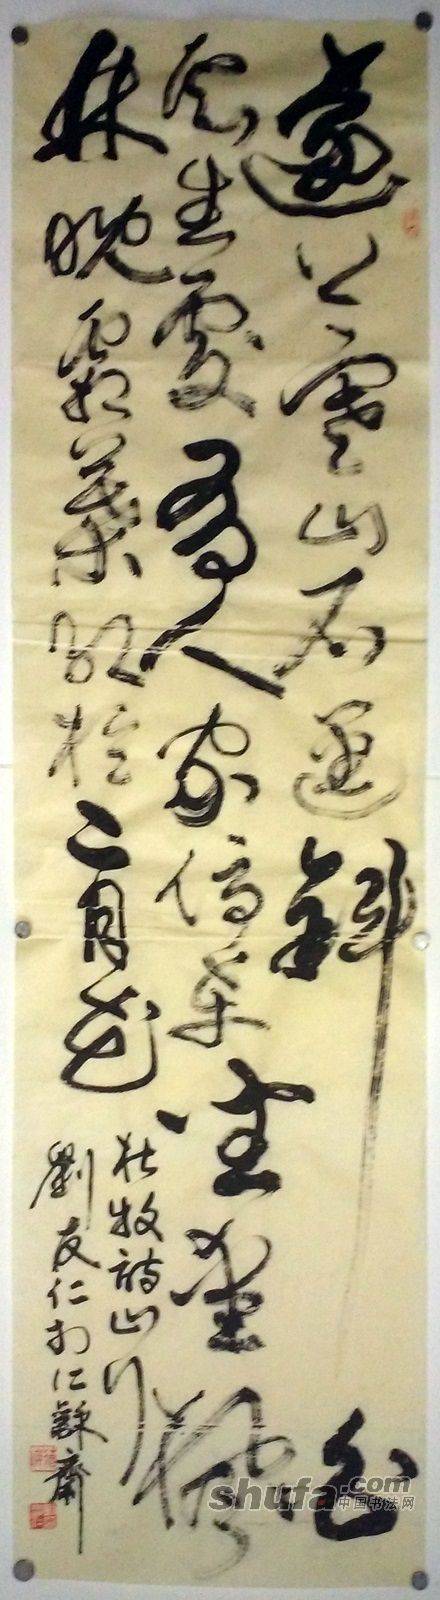 遠上寒山石逕斜白
雲生處有人家停車坐愛楓
林晚霜葉紅於二月花
杜牧詩山行
劉友仁於仁齋
shufa.com
中国书法网